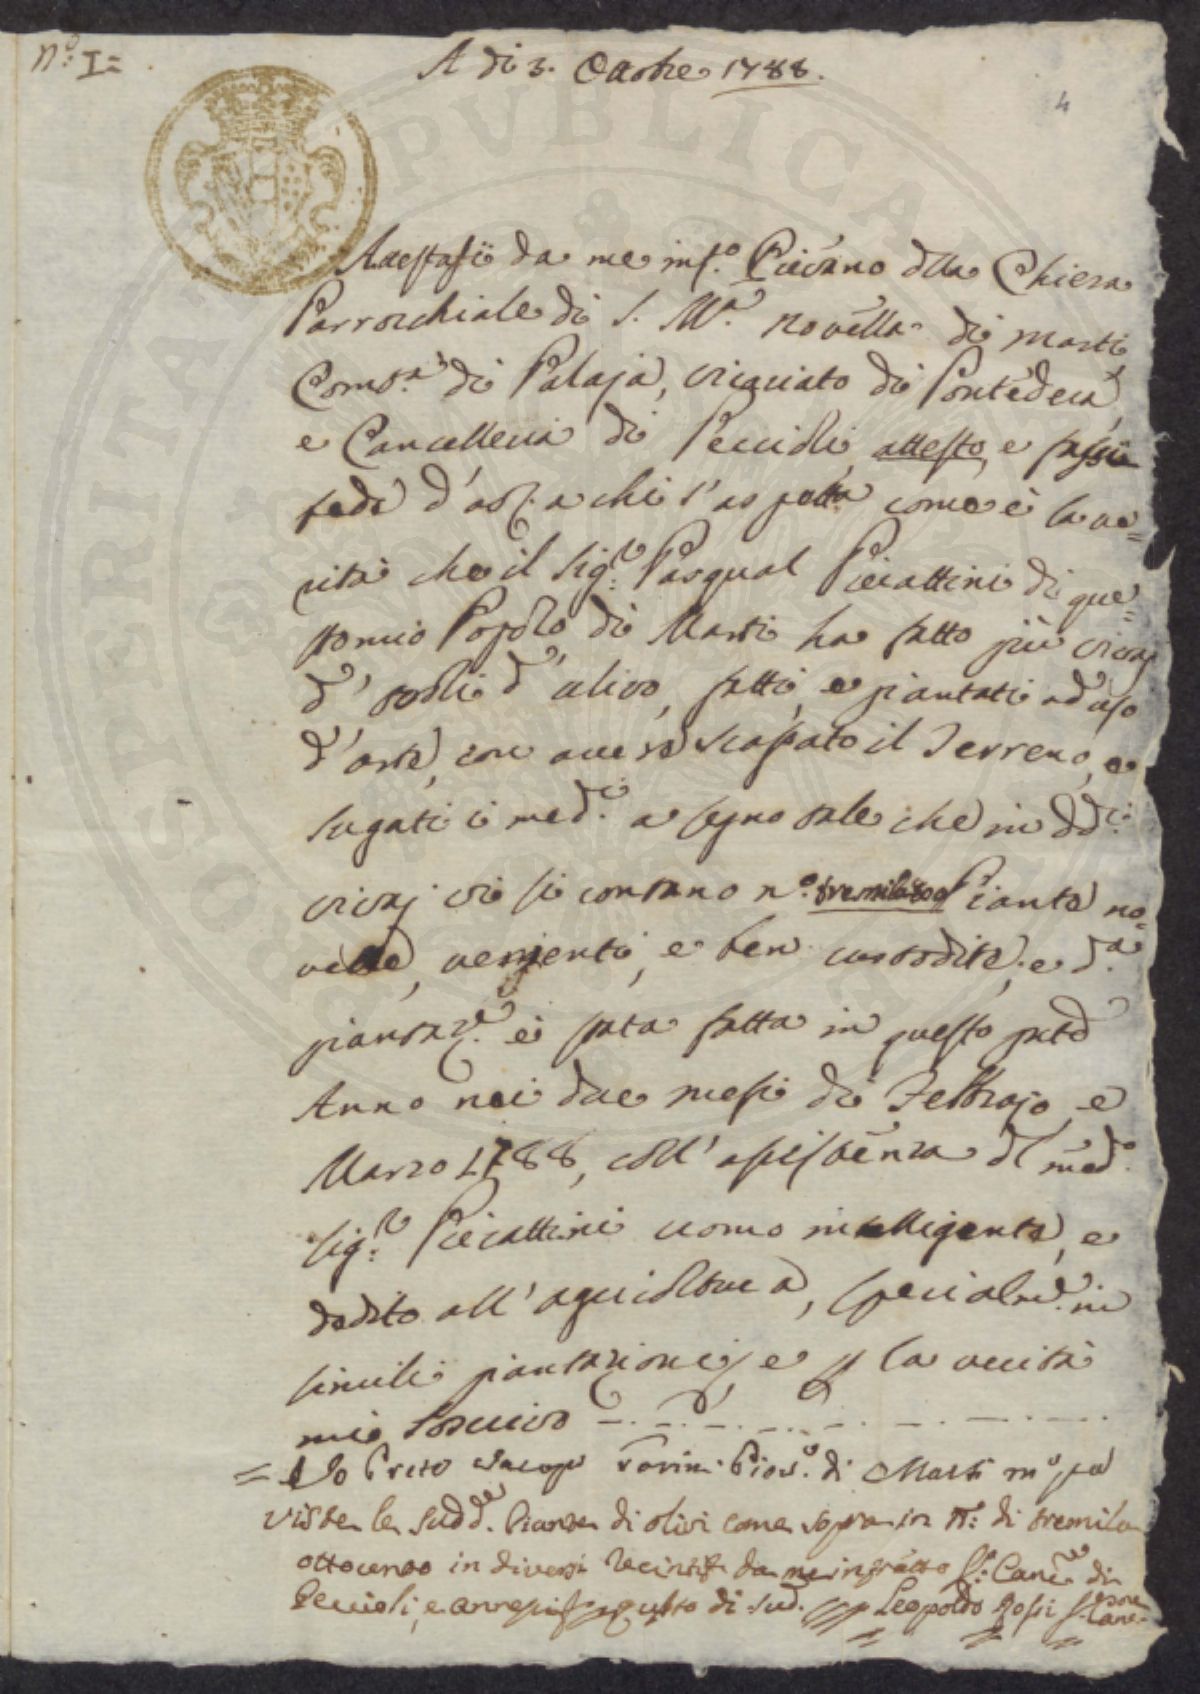 N.º I =
A dì 3. Ottobre 1788.
4
Attestasi da me inf.º Pievano dlla Chiesa
Parrochiale di S. M.ª novella di Marti
Com.tà di Palaja, vicariato di Pontedera
e Cancelleria di Peccioli attesto, e faccio
fede d'esser a chi s'aspetta come è la ve=
rità che il Sig.r Pasqual Pieiattini di que=
sto mio Popolo di Marti ha fatto più vivaj
d' ovoli d'ulivo, fatti, e piantati ad uso
d'arte, con avere scassato il Terreno, e
sugati i med.i a segno tale che in dd.i
vivaj vi si contano n.º tremila800 Piante no=
velle, venienti, e ben custodite, e d.ª
piantaz.e è stata fatta in questo
Anno nei due mesi di Febbrajo, e
Marzo 1788, coll'assistenza dl med.º
Sig.r Pieiattini uomo intelligente, e
dedito all'agricoltura, specialm.e in
simili piantazioni, e p la verità
mio
= Io Prete Jacopo Piov.º di Marti m.º pp.ª
viste le sudd.e Piante di olivi come sopra in N.: di tremila
ottocento in diversi da me infratto S.: Canc.e di
Peccioli, e di sud. Leopoldo Rossi S. Canc.